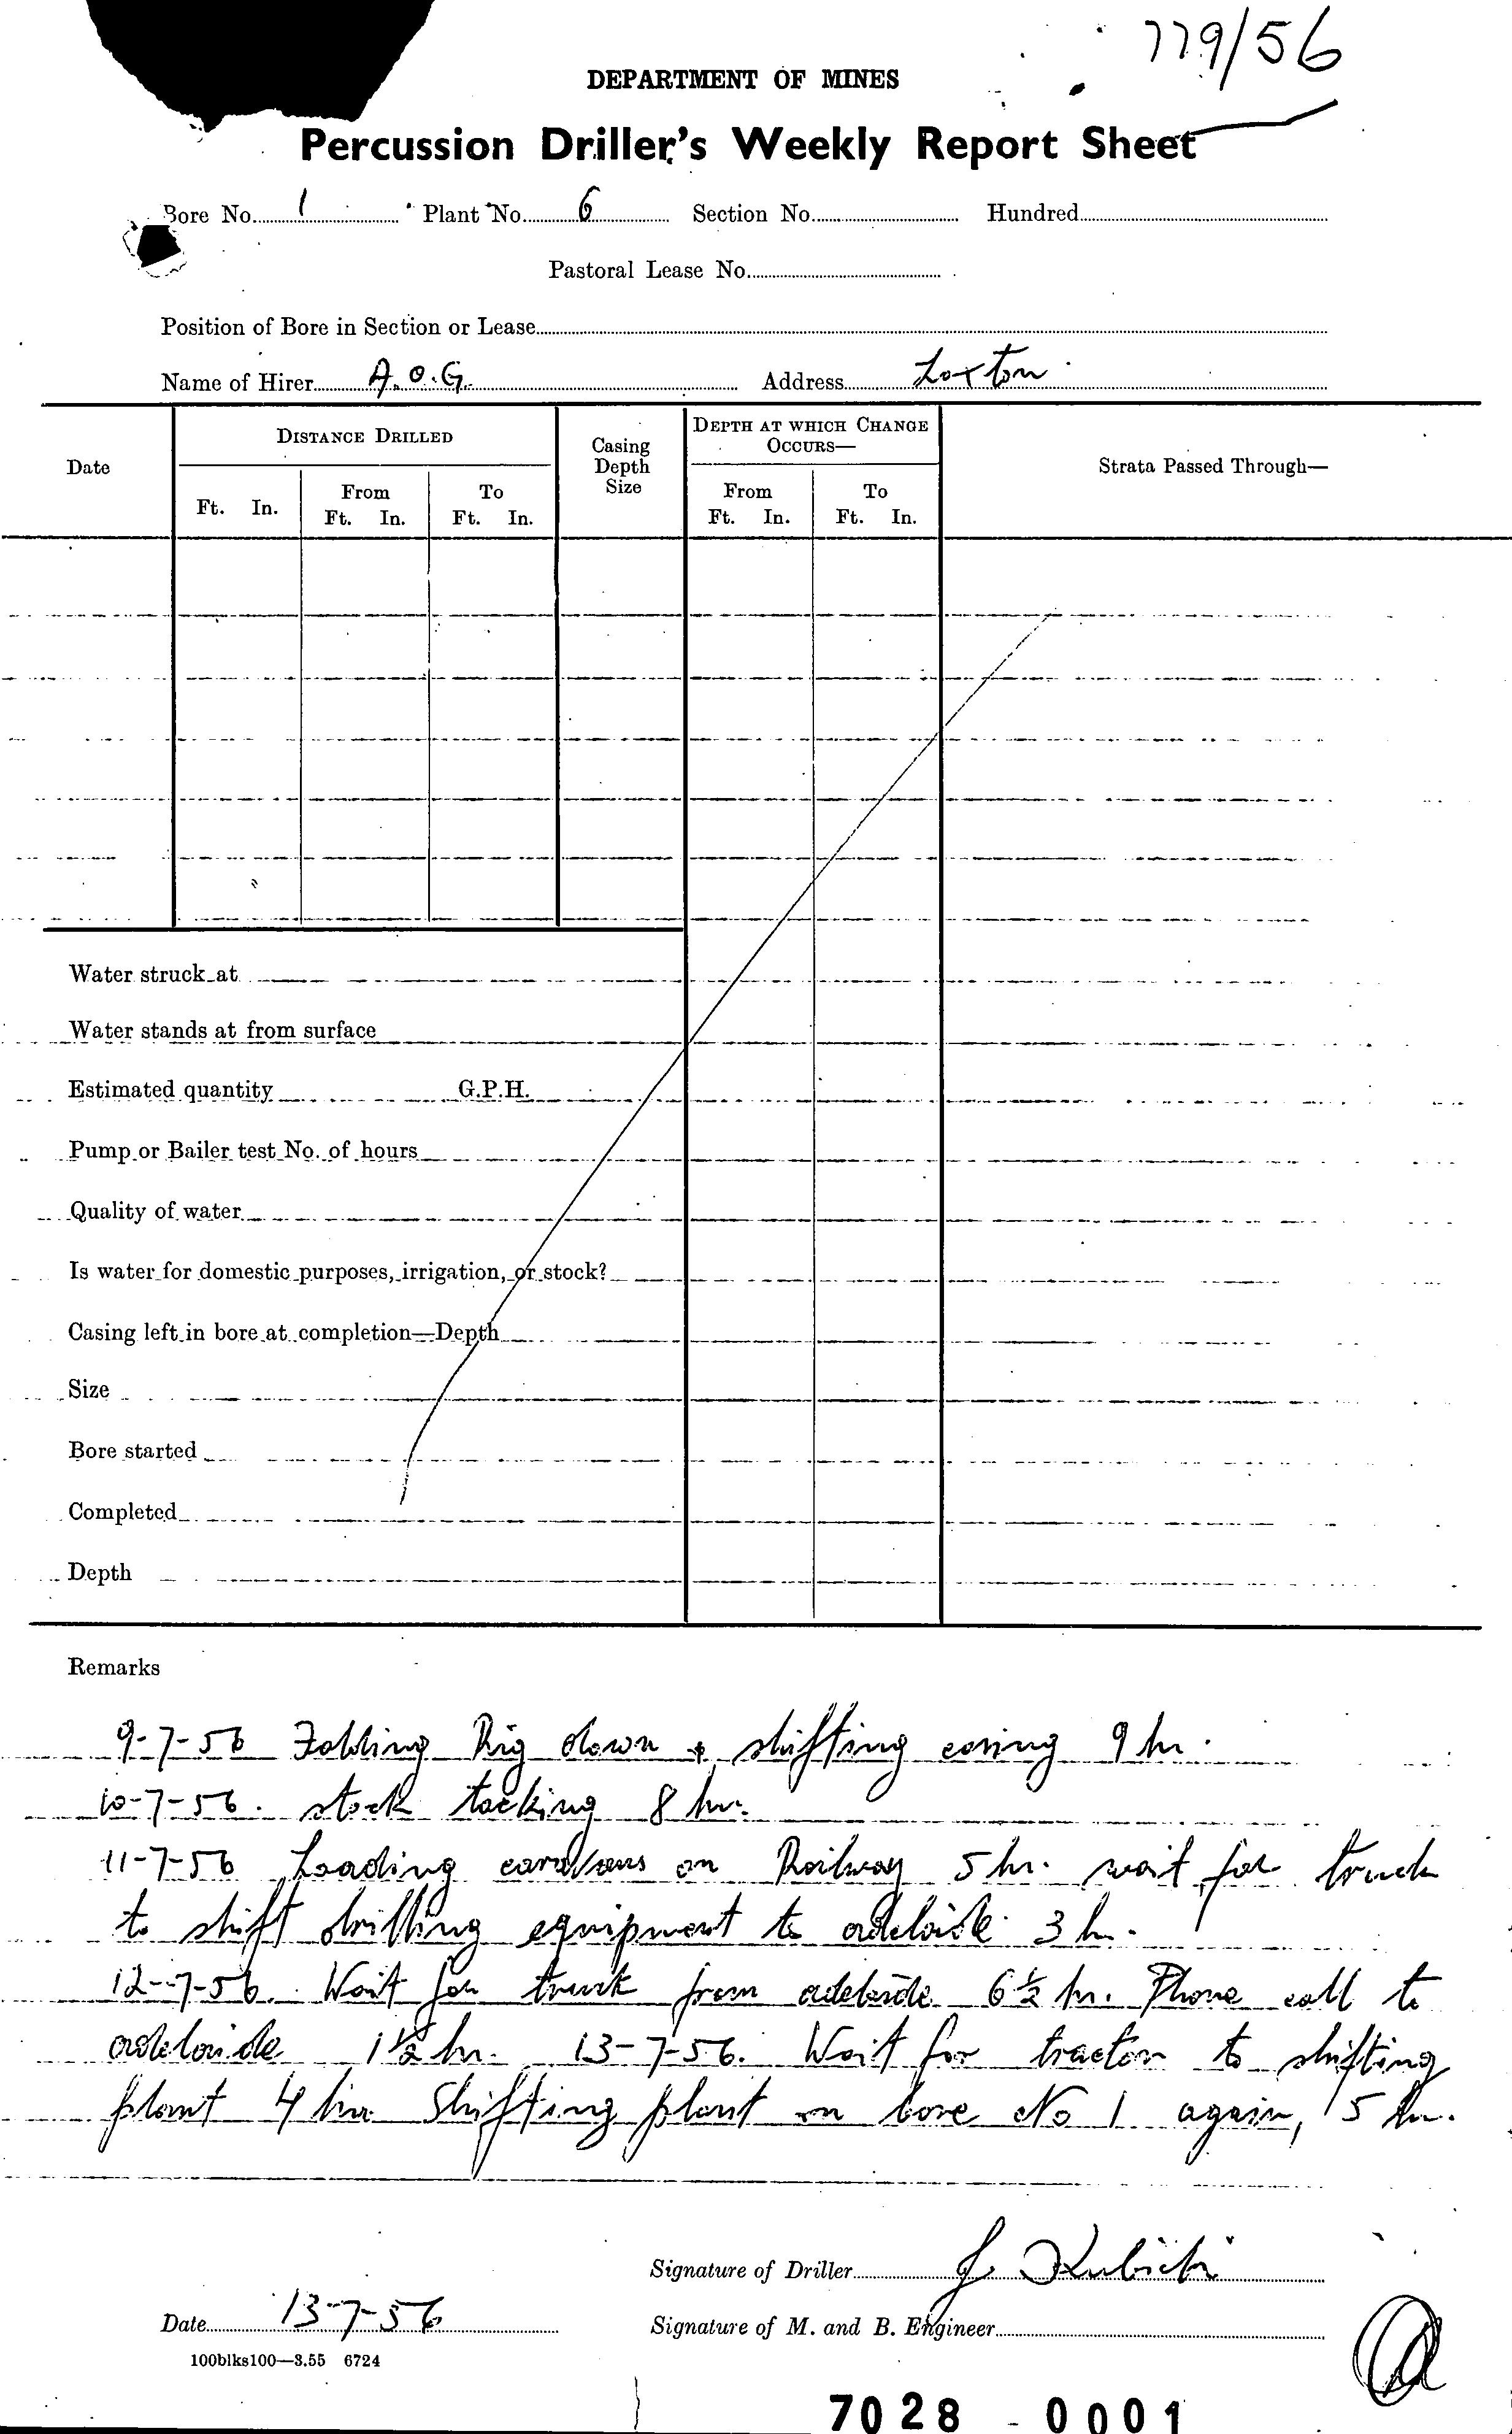 779/56
DEPARTMENT OF MINES
Percussion Driller's Weekly Report Sheet
Bore No. 1 Plant No. 6 Section No. Hundred
Pastoral Lease No.
Position of Bore in Section or Lease
Name of Hirer A.O.G. Address Loxton
Date
DISTANCE DRILLED
Ft. In.
From
Ft. In.
To
Ft. In.
Casing
Depth
Size
DEPTH AT WHICH CHANGE
OCCURS—
From
Ft. In.
To
Ft. In.
Strata Passed Through—
Water struck at
Water stands at from surface
Estimated quantity G.P.H.
Pump or Bailer test No. of hours
Quality of water
Is water for domestic purposes, irrigation, or stock?
Casing left in bore at completion—Depth
Size
Bore started
Completed
Depth
Remarks
9-7-56 Folding Rig down + shifting casing 9 hr.
10-7-56. stock tacking 8 hr.
11-7-56 Loading caravans on Railway 5 hr. wait for truck
to shift drilling equipment to adelaide 3 h.
12-7-56. Wait for truck from adelaide 6½ hr. Phone call to
adelaide 1½ hr. 13-7-56. Wait for tractor to shifting
plant 4 hr Shifting plant on bore No 1 again, 5 hr.
Signature of Driller J Kubicki
Date 13-7-56
Signature of M. and B. Engineer
100blks100—3.55 6724
7028 - 0001